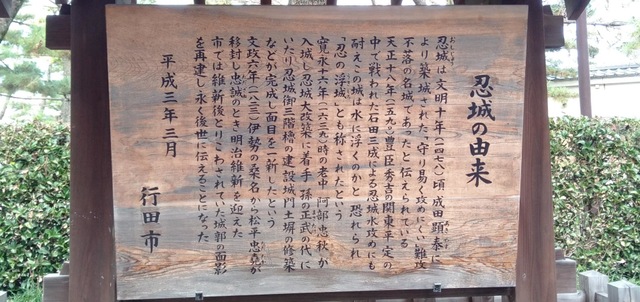 忍城の由来
おしじょう
忍城は文明十年(一四七八)頃 成田顕泰に
より築城された、守り易く攻めにくい難攻
不落の名城であったと伝えられている
天正十八年(一五九〇)豊臣秀吉の関東平定の
中で戦われた石田三成による忍城水攻めにも
耐えこの城は水に浮くのかと 恐れられ
「忍の浮城」とも称されたという
寛永十六年(一六三九)時の老中 阿部忠秋が
入城し忍城大改築に着手 孫の正武の代に
いたり忍城御三階櫓の建設城門土塀の修築
などが完成し面目を一新したという
文政六年(一八二三)伊勢の桑名から松平忠堯が
移封し忠誠のとき明治維新を迎えた
市では維新後とりこわされていた城郭の面影
を再建し永く後世に伝えることになった
平成三年三月
行田市